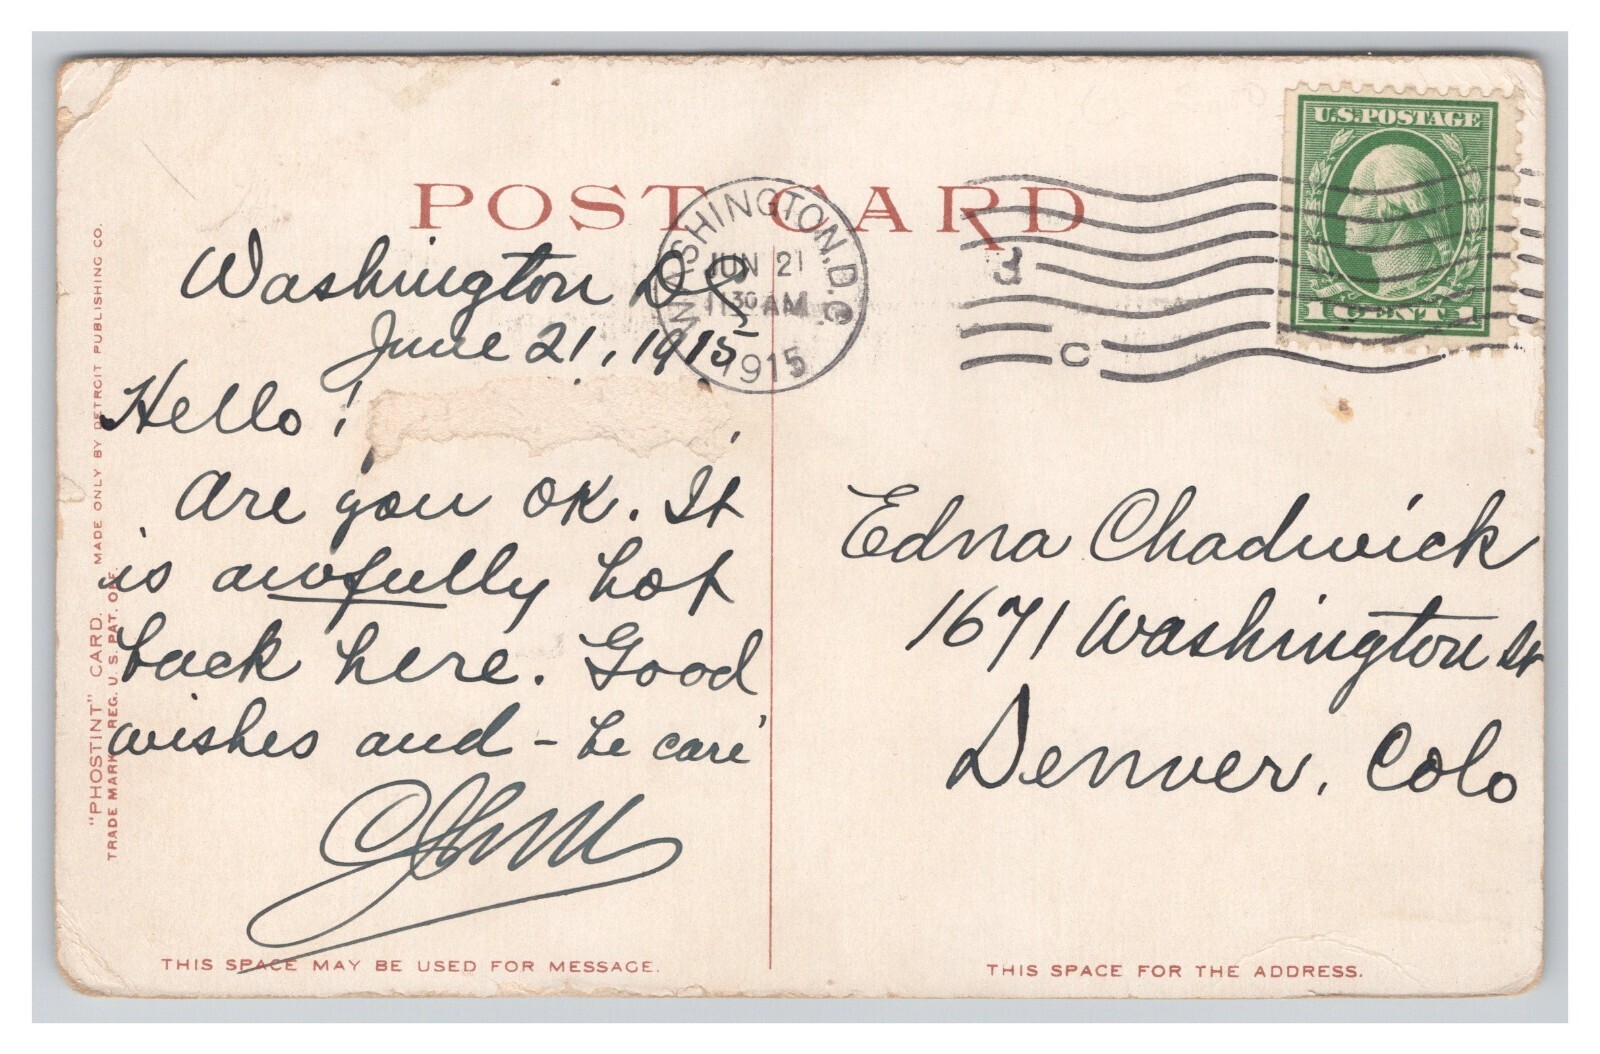 POST CARD
WASHINGTON, D.C.
JUN 21
11 30 AM
1915
U.S. POSTAGE
1 CENT 1
3
C
Washington DC
June 21, 1915
Hello!
Are you OK. It
is awfully hot
back here. Good
wishes and - be care'
Edna Chadwick
1671 Washington St
Denver, Colo
"PHOSTINT" CARD. MADE ONLY BY DETROIT PUBLISHING CO.
TRADE MARK REG. U. S. PAT. OFF.
THIS SPACE MAY BE USED FOR MESSAGE.
THIS SPACE FOR THE ADDRESS.